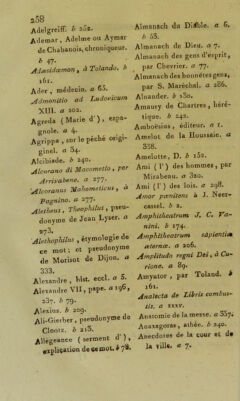 258
Adelgreiff. b 252.
Ademar, Adelme ou Aymar
de Chabanois, chroniqueur.
b 47.
Adeisidæmon, à Tolando. b
161.
Ader, médecin. a 65.
Admonitio ad Ludovicum
XIII. a 202.
Agreda (Marie d'), espa-
gnole. a 4.
Agrippa, sur le péché origi-
ginel. a 54.
Alcibiade. b 240.
Alcorano di Macometto, per
Arrivabene. a 277.
Alcoranus Mahometicus, à
Pagnino. a 277.
Aletheus, Theophilus, pseu-
donyme de Jean Lyser. a
273.
Alethophilus, étymologie de
ce mot: et pseudonyme
de Morisot de Dijon. a
333.
Alexandre, hist. eccl. a 5.
Alexandre VII, pape. a 196,
237. b 79.
Alexius. b 209.
Ali-Gierber, pseudonyme de
Clootz. b 213.
Allégeance (serment d'),
explication de ce mot. b 78.
Almanach du Diable. a 6.
b 53.
Almanach de Dieu. a 7.
Almanach des gens d'esprit,
par Chevrier. a 77.
Almanach des honnêtes gens,
par S. Maréchal. a 286.
Alnander. b 130.
Amaury de Chartres, héré-
tique. b 242.
Amboësius, éditeur. a 1.
Amelot de la Houssaie. a
338.
Amelotte, D. b 152.
Ami (l') des hommes, par
Mirabeau. a 320.
Ami (l') des lois. a 298.
Amor pœnitens à J. Neer-
cassel. b 2.
Amphitheatrum J. C. Va-
nini. b 174.
Amphitheatrum sapientiæ
æternæ. a 206.
Amplitudo regni Dei, à Cu-
rione. a 89.
Amyntor, par Toland. b
161.
Analecta de Libris combus-
tis. a xxxv.
Anatomie de la messe. a 357.
Anaxagoras, athée. b 240.
Anecdotes de la cour et de
la ville. a 7.